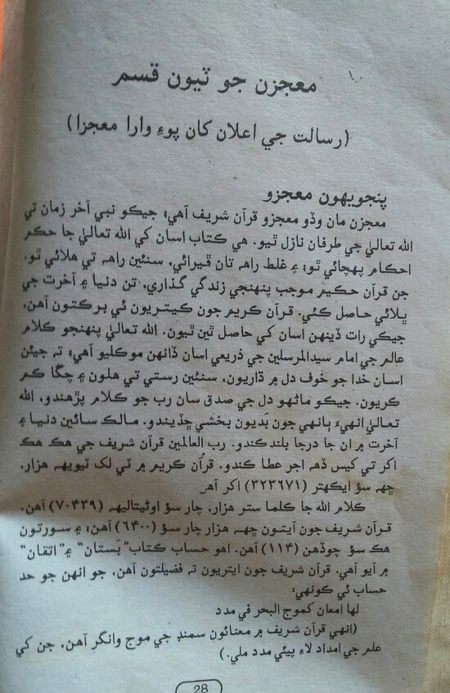 معجزن جو ٽيون قسم
(رسالت جي اعلان کان پوءِ وارا معجزا)
پنجويهون معجزو
معجزن مان وڏو معجزو قرآن شريف آهي؛ جيڪو نبي آخر زمان تي
الله تعاليٰ جي طرفان نازل ٿيو. هي ڪتاب اسان کي الله تعاليٰ جا حڪم
احڪام پهچائي ٿو؛ ۽ غلط راهه تان ڦيرائي، سنئين راهه تي هلائي ٿو.
جن قرآن حڪيم موجب پنهنجي زندگي گذاري، تن دنيا ۽ آخرت جي
ڀلائي حاصل ڪئي. قرآن ڪريم جون ڪيتريون ئي برڪتون آهن،
جيڪي رات ڏينهن اسان کي حاصل ٿين ٿيون. الله تعاليٰ پنهنجو ڪلام
عالم جي امام سيدالمرسلين جي ذريعي اسان ڏانهن موڪليو آهي؛ ته جيئن
اسان خدا جو خوف دل ۾ ڌاريون، سنئين رستي تي هلون ۽ چڱا ڪم
ڪريون. جيڪو ماڻهو دل جي صدق سان رب جو ڪلام پڙهندو، الله
تعاليٰ انهيءَ ٻانهي جون بديون بخشي ڇڏيندو. مالڪ سائين دنيا ۽
آخرت ۾ ان جا درجا بلند ڪندو. رب العالمين قرآن شريف جي هڪ هڪ
اکر تي کيس ڏهه اجر عطا ڪندو. قرآن ڪريم ۾ ٽي لک ٽيويهه هزار،
ڇهه سؤ ايڪهتر (۳۲۳۶۷۱) اکر آهن
ڪلام الله جا ڪلما ستر هزار، چار سؤ اوڻيتاليهه (۷۰۴۳۹) آهن.
قرآن شريف جون آيتون ڇهه هزار چار سؤ (۶۴۰۰) آهن؛ ۽ سورتون
هڪ سؤ چوڏهن (۱۱۴) آهن. اهو حساب ڪتاب "بستان" ۽ "اتقان"
۾ آيو آهي. قرآن شريف جون ايتريون ته فضيلتون آهن، جو انهن جو حد
حساب ئي ڪونهي؛
لها امعان کموج البحر في مدد
(انهي قرآن شريف ۾ معنائون سمنڊ جي موج وانگر آهن، جن کي
علم جي امداد لاءِ پيئي مدد ملي.)
28